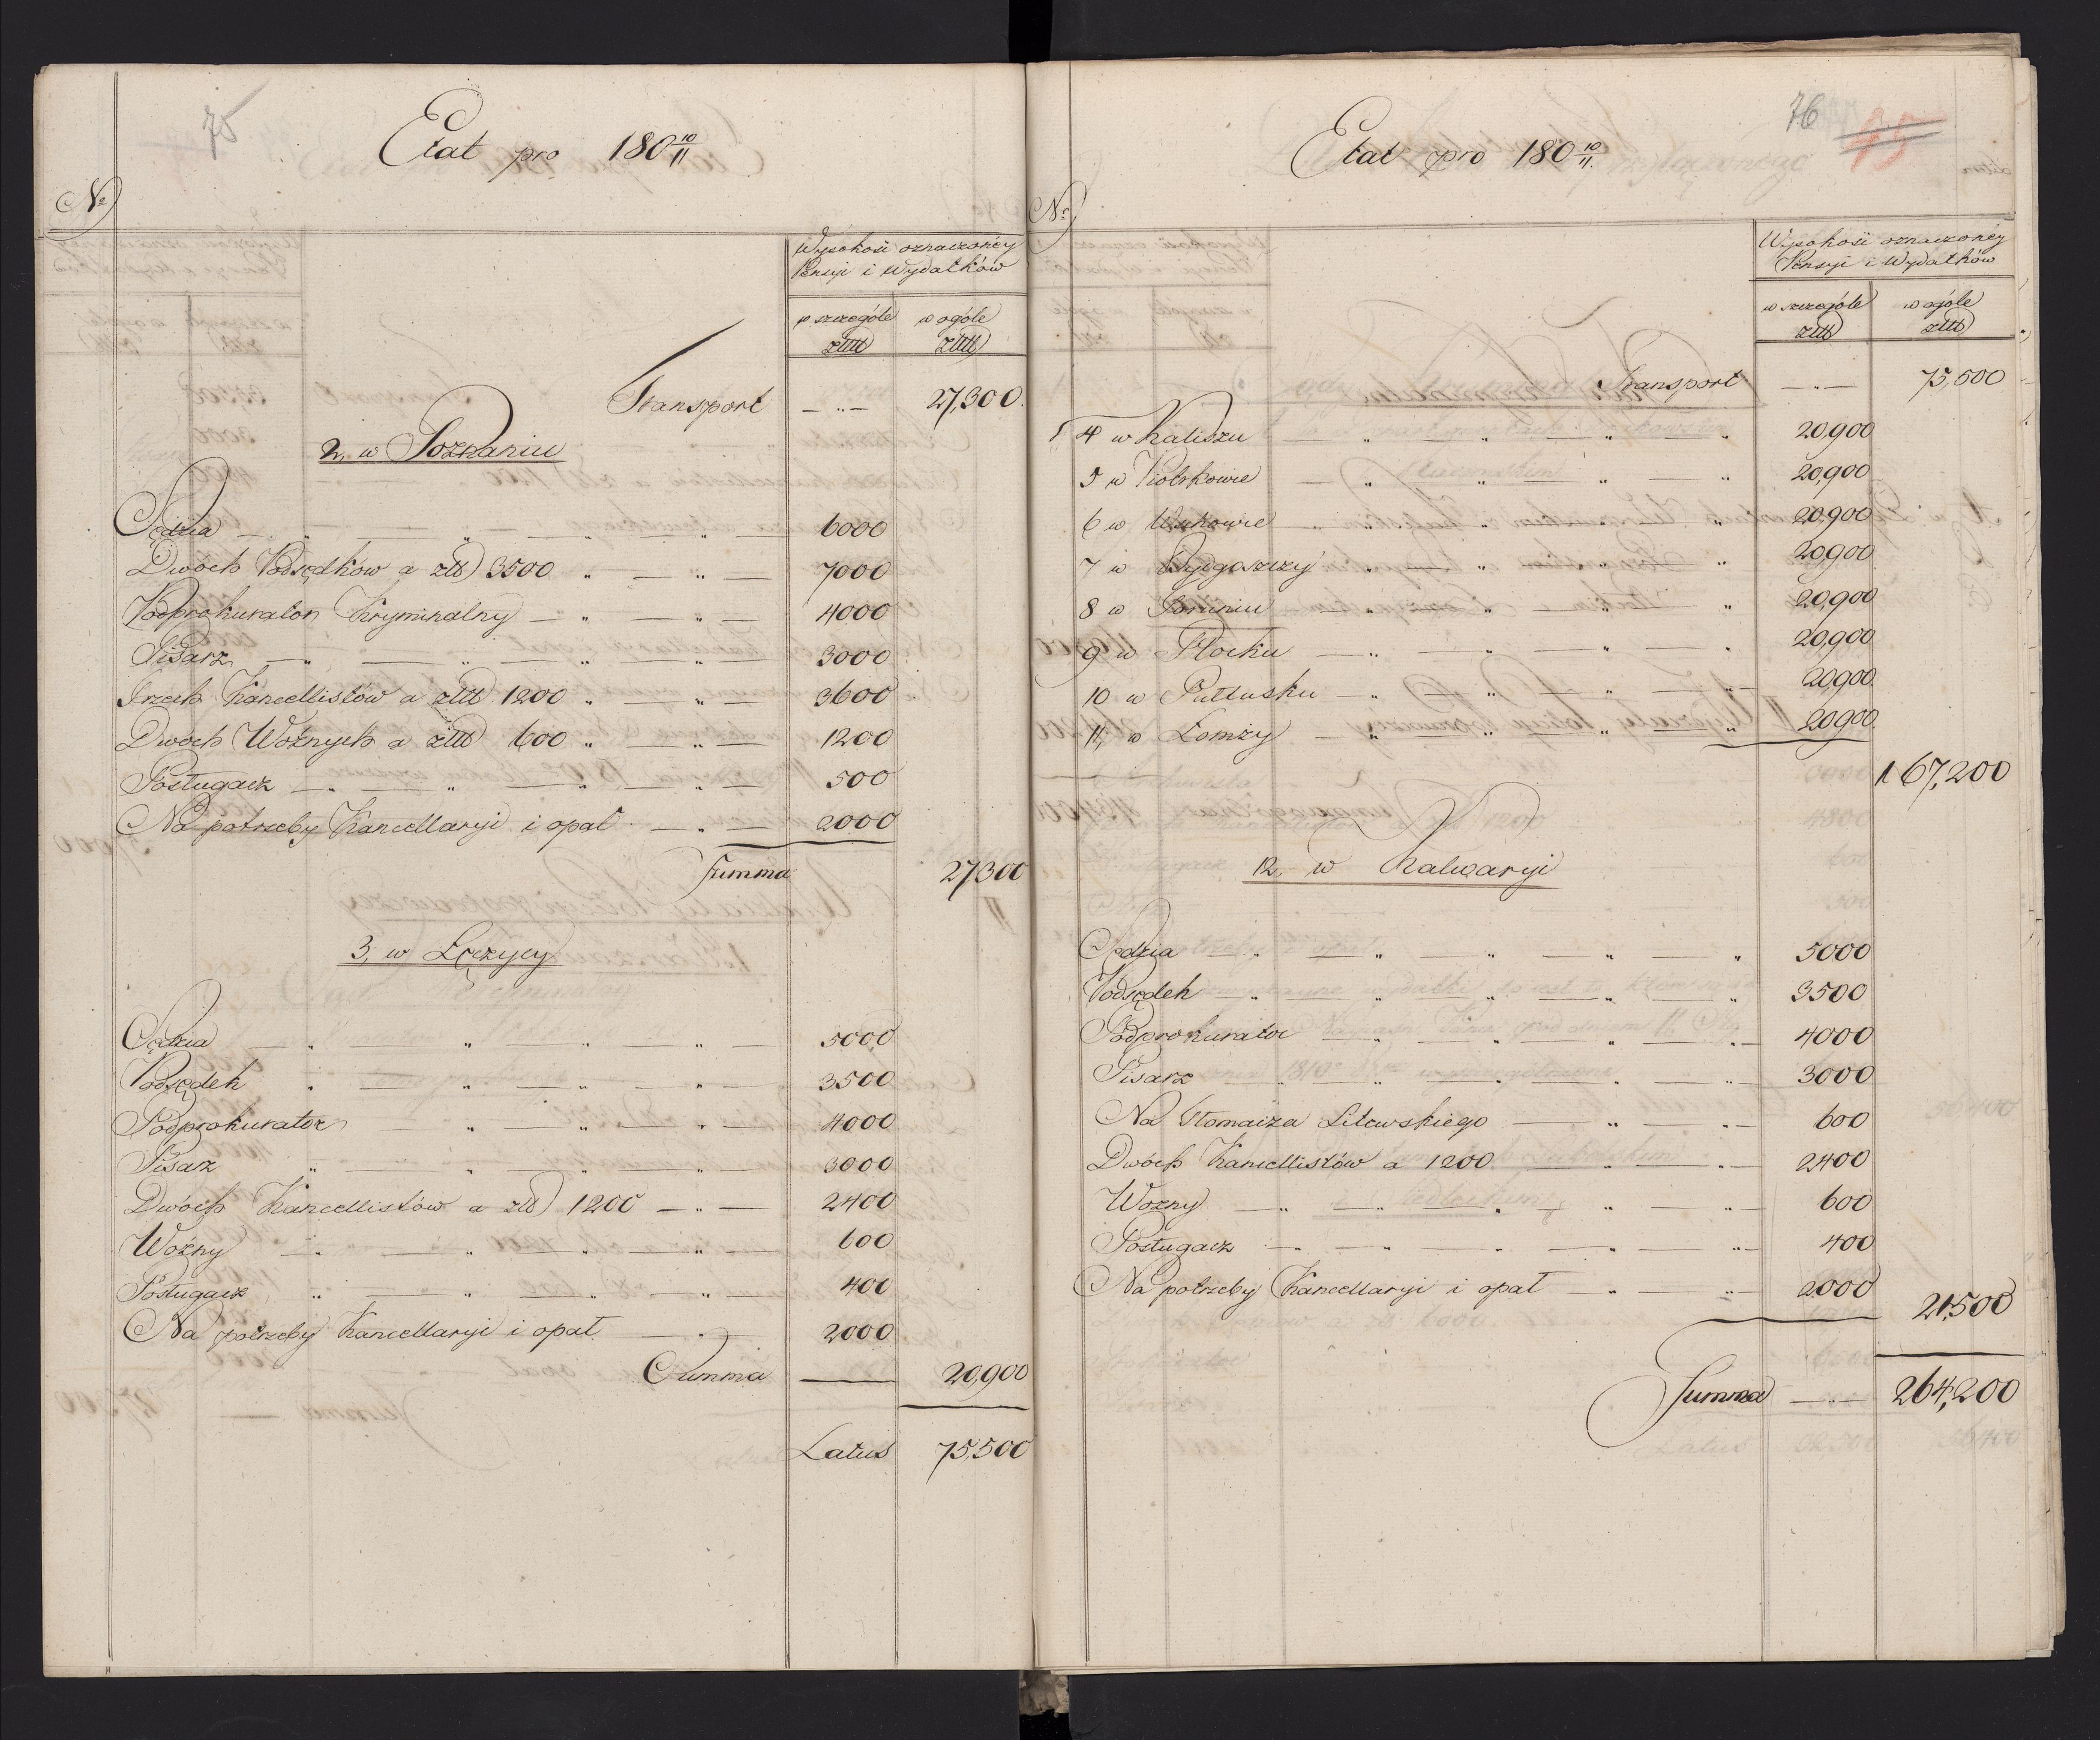 75
Etat pro 180 10/11
Nr
Wysokość oznaczonéy
Pensyi i Wydatków
w szczególe w ogóle
złłł złłł
Transport — „ — 27,300.
2, w Poznaniu
Sędzia 6000
Dwóch Podsędków a złł 3500 7000
Podprokurator Kryminalny 4000
Pisarz 3000
Trzech Kancellistów a złł 1200 3600
Dwóch Woźnych a złł 600 1200
Posługacz 500
Na potrzeby Kancellaryi i opał 2000
Summa 27300
3, w Łęczycy
Sędzia 5000
Podsędek 3500
Podprokurator 4000
Pisarz 3000
Dwóch Kancellistów a złł 1200 2400
Woźny 600
Posługacz 400
Na potrzeby Kancellaryi i opał 2000
Summa 20,900
Latus 75,500
76
75
Etat pro 180 10/11.
Nr
Wysokość oznaczonéy
Pensyi i Wydatków
w szczególe w ogóle
złłł złłł
Transport — „ — 75,500
4 w Kaliszu 20,900
5 w Piotrkowie 20,900
6 w 20,900
7 w Bydgoszczy 20,900
8 w Toruniu 20,900
9 w Płocku 20,900
10 w Pułtusku 20,900
11, w Łomży 20,900.
167,200
12, w Kalwaryi
Sędzia 5000
Podsędek 3500
Podprokurator 4000
Pisarz 3000
Na Tłomacza Litewskiego 600
Dwóch Kancellistów a 1200 2400
Woźny 600
Posługacz 400
Na potrzeby Kancellaryi i opał 2000
21,500
Summa — „ — 264,200